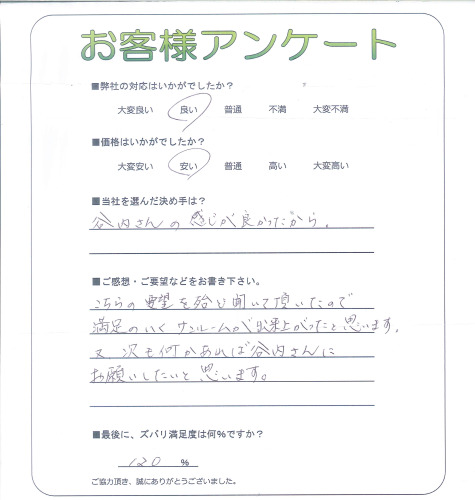 お客様アンケート
■弊社の対応はいかがでしたか？
大変良い 良い 普通 不満 大変不満
■価格はいかがでしたか？
大変安い 安い 普通 高い 大変高い
■当社を選んだ決め手は？
谷内さんの感じが良かったから。
■ご感想・ご要望などをお書き下さい。
こちらの要望を殆ど聞いて頂いたので
満足のいくサンルームが出来上がったと思います。
又次も何かあれば谷内さんに
お願いしたいと思います。
■最後に、ズバリ満足度は何％ですか？
120 ％
ご協力頂き、誠にありがとうございました。